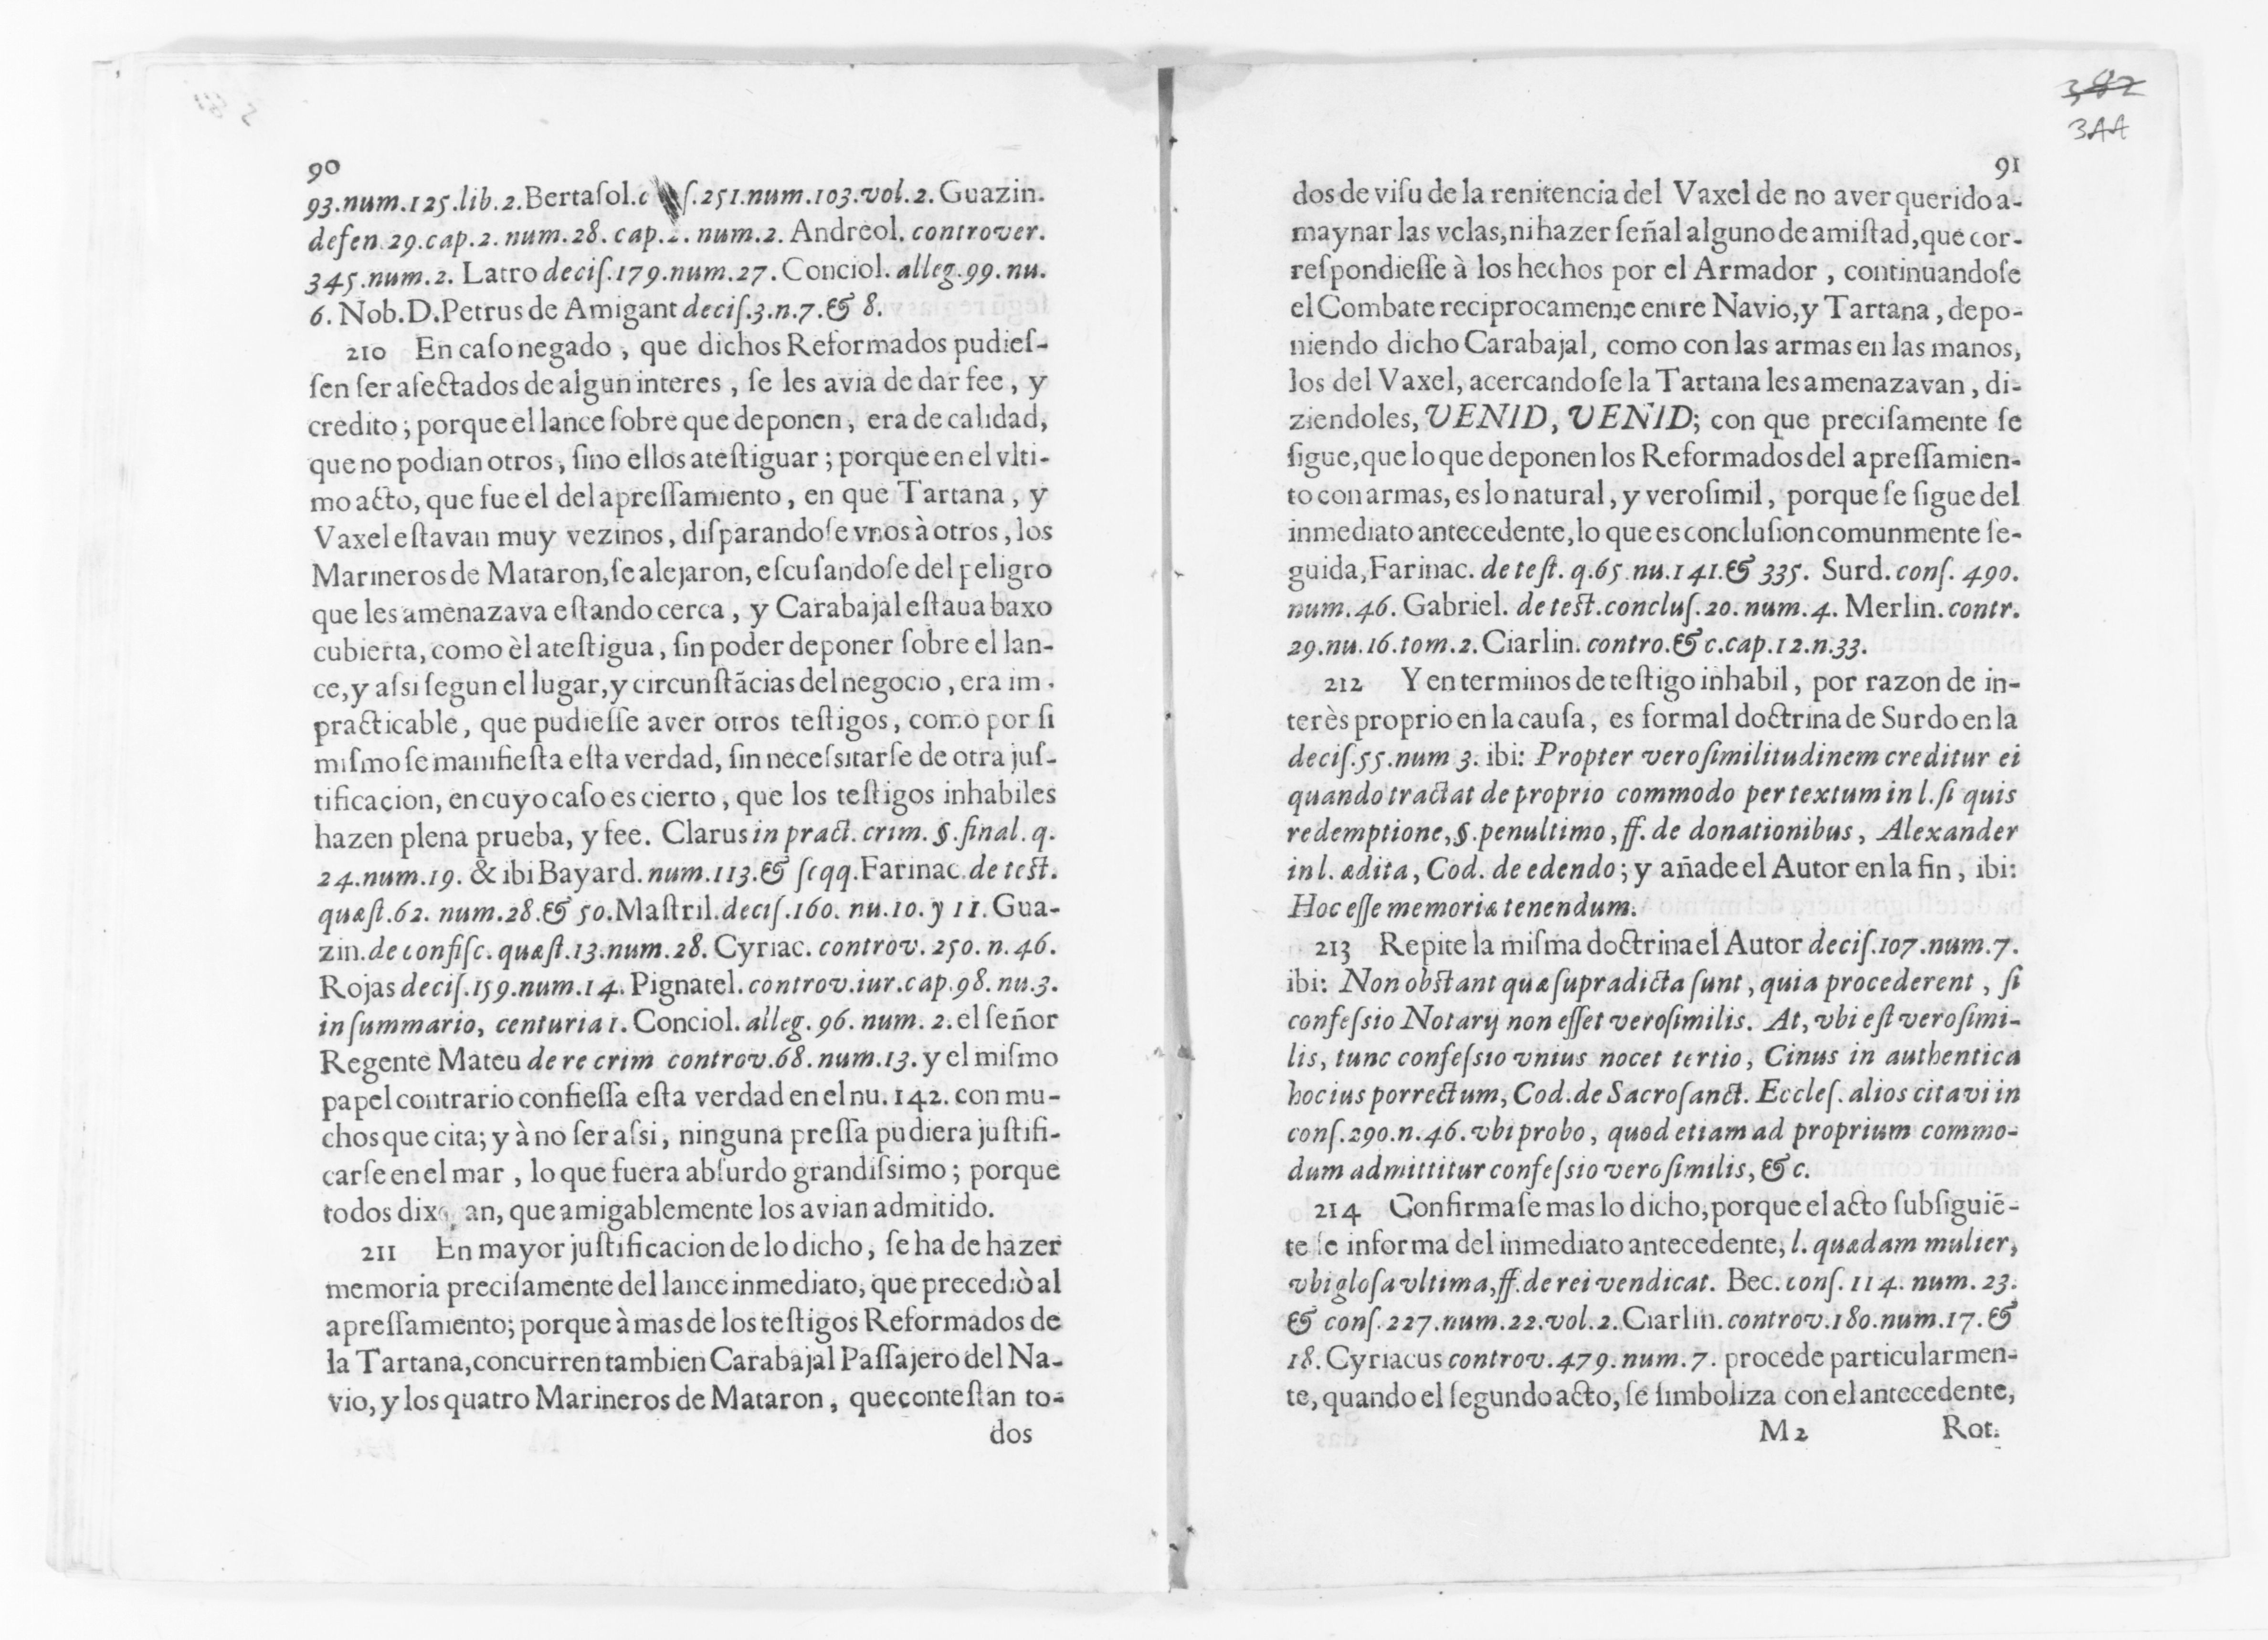 90
93.num.125.lib.2.Bertaſol. ſ.251.num.103.vol.2. Guazin.
defen.29.cap.2.num.28.cap. num.2. Andreol. controver.
345.num.2. Latro deciſ.179.num.27. Conciol. alleg.99.nu.
6. Nob.D.Petrus de Amigant deciſ.3.n.7.& 8.
210 En caſo negado, que dichos Reformados pudieſ-
ſen ſer afectados de algun interes, ſe les avia de dar fee, y
credito; porque el lance ſobre que deponen, era de calidad,
que no podian otros, ſino ellos ateſtiguar; porque en el vlti-
mo acto, que fue el del apreſſamiento, en que Tartana, y
Vaxel eſtavan muy vezinos, diſparandoſe vnos à otros, los
Marineros de Mataron, ſe alejaron, eſcuſandoſe del peligro
que les amenazava eſtando cerca, y Carabajal eſtaua baxo
cubierta, como èl ateſtigua, ſin poder deponer ſobre el lan-
ce, y aſsi ſegun el lugar, y circunſtãcias del negocio, era im-
practicable, que pudieſſe aver otros teſtigos, como por ſi
miſmo ſe manifieſta eſta verdad, ſin neceſsitarſe de otra juſ-
tificacion, en cuyo caſo es cierto, que los teſtigos inhabiles
hazen plena prueba, y fee. Clarus in pract. crim. §. final. q.
24.num.19. & ibi Bayard. num.113.& ſeqq. Farinac. de teſt.
quæſt.62. num.28.& 50. Maſtril. deciſ.160. nu.10. y 11. Gua-
zin. de confiſc. quæſt.13.num.28. Cyriac. controv. 250. n.46.
Rojas deciſ.159.num.14. Pignatel. controv.iur.cap.98. nu.3.
in ſummario, centuria 1. Conciol. alleg. 96. num. 2. el ſeñor
Regente Mateu de re crim controv.68.num.13. y el miſmo
papel contrario confieſſa eſta verdad en el nu. 142. con mu-
chos que cita; y à no ſer aſsi, ninguna preſſa pudiera juſtifi-
carſe en el mar, lo que fuera abſurdo grandiſsimo; porque
todos dix an, que amigablemente los avian admitido.
211 En mayor juſtificacion de lo dicho, ſe ha de hazer
memoria preciſamente del lance inmediato, que precediò al
apreſſamiento; porque à mas de los teſtigos Reformados de
la Tartana, concurren tambien Carabajal Paſſajero del Na-
vio, y los quatro Marineros de Mataron, que conteſtan to-
dos
382
3AA
91
dos de viſu de la renitencia del Vaxel de no aver querido a-
maynar las velas, ni hazer ſeñal alguno de amiſtad, que cor-
reſpondieſſe à los hechos por el Armador, continuandoſe
el Combate reciprocamente entre Navio, y Tartana, depo-
niendo dicho Carabajal, como con las armas en las manos,
los del Vaxel, acercandoſe la Tartana les amenazavan, di-
ziendoles, VENID, VENID; con que preciſamente ſe
ſigue, que lo que deponen los Reformados del apreſſamien-
to con armas, es lo natural, y veroſimil, porque ſe ſigue del
inmediato antecedente, lo que es concluſion comunmente ſe-
guida, Farinac. de teſt. q.65. nu.141.& 335. Surd. conſ. 490.
num.46. Gabriel. de teſt.concluſ.20. num.4. Merlin. contr.
29.nu.16.tom.2. Ciarlin. contro.&c.cap.12.n.33.
212 Y en terminos de teſtigo inhabil, por razon de in-
terès proprio en la cauſa, es formal doctrina de Surdo en la
deciſ.55.num 3. ibi: Propter veroſimilitudinem creditur ei
quando tractat de proprio commodo per textum in l. ſi quis
redemptione, §.penultimo, ff. de donationibus, Alexander
in l. ædita, Cod. de edendo; y añade el Autor en la fin, ibi:
Hoc eſſe memoriæ tenendum.
213 Repite la miſma doctrina el Autor deciſ.107.num.7.
ibi: Non obſtant quæ ſupradicta ſunt, quia procederent, ſi
confeſsio Notarij non eſſet veroſimilis. At, vbi eſt veroſimi-
lis, tunc confeſsio vnius nocet tertio, Cinus in authentica
hoc ius porrectum, Cod.de Sacroſanct. Eccleſ. alios citavi in
conſ.290.n.46. vbi probo, quod etiam ad proprium commo-
dum admittitur confeſsio veroſimilis, &c.
214 Confirmaſe mas lo dicho, porque el acto ſubſiguiẽ-
te ſe informa del inmediato antecedente, l. quædam mulier,
vbi gloſa vltima, ff. de rei vendicat. Bec. conſ. 114. num. 23.
& conſ.227.num.22.vol.2. Ciarlin. controv.180.num.17.&
18. Cyriacus controv.479.num.7. procede particularmen-
te, quando el ſegundo acto, ſe ſimboliza con el antecedente,
M 2 Rot.